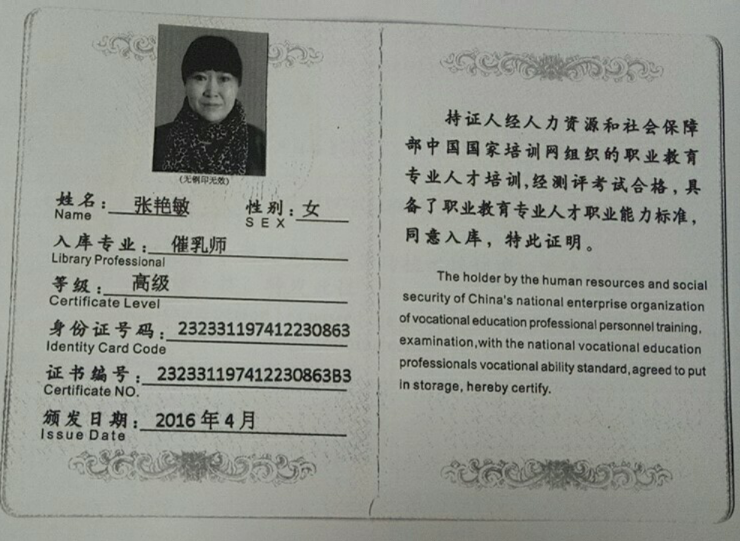 (无钢印无效)
姓名: 张艳敏 性别: 女
Name SEX
入库专业: 催乳师
Library Professional
等级: 高级
Certificate Level
身份证号码: 232331197412230863
Identity Card Code
证书编号: 232331197412230863B3
Certificate NO.
颁发日期: 2016年4月
Issue Date
持证人经人力资源和社会保障
部中国国家培训网组织的职业教育
专业人才培训,经测评考试合格,具
备了职业教育专业人才职业能力标准,
同意入库，特此证明。
The holder by the human resources and social
security of China's national enterprise organization
of vocational education professional personnel training,
examination,with the national vocational education
professionals vocational ability standard,agreed to put
in storage, hereby certify.